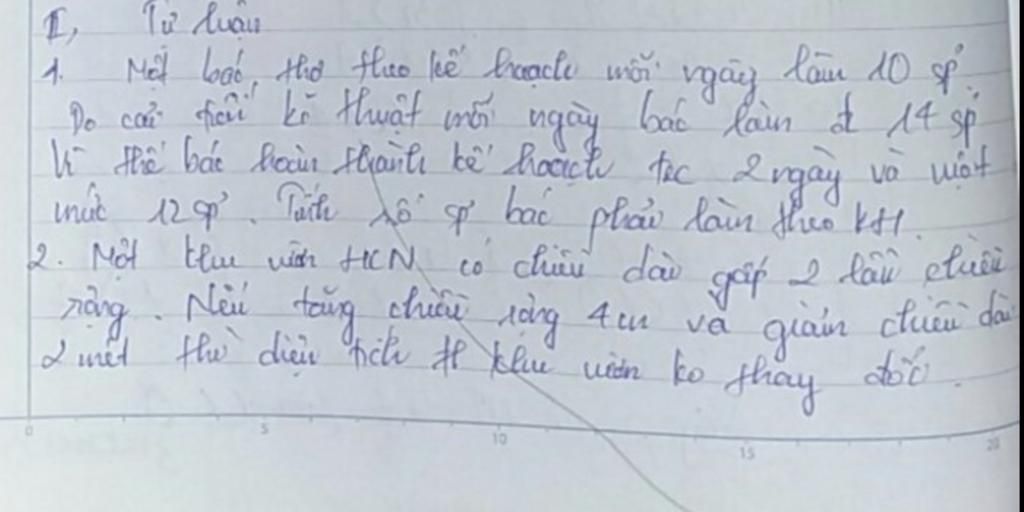 II, Tự luận
1. Một bác thợ theo kế hoạch mỗi ngày làm 10 sp.
Do cải tiến kĩ thuật mỗi ngày bác làm đc 14 sp
Vì thế bác hoàn thành kế hoạch trc 2 ngày và vượt
mức 12 sp. Tính số sp bác phải làm theo KH.
2. Một khu vườn HCN có chiều dài gấp 2 lần chiều
rộng. Nếu tăng chiều rộng 4 cm và giảm chiều dài
2 mét thì diện tích khu vườn ko thay đổi.
0 5 10 15 20